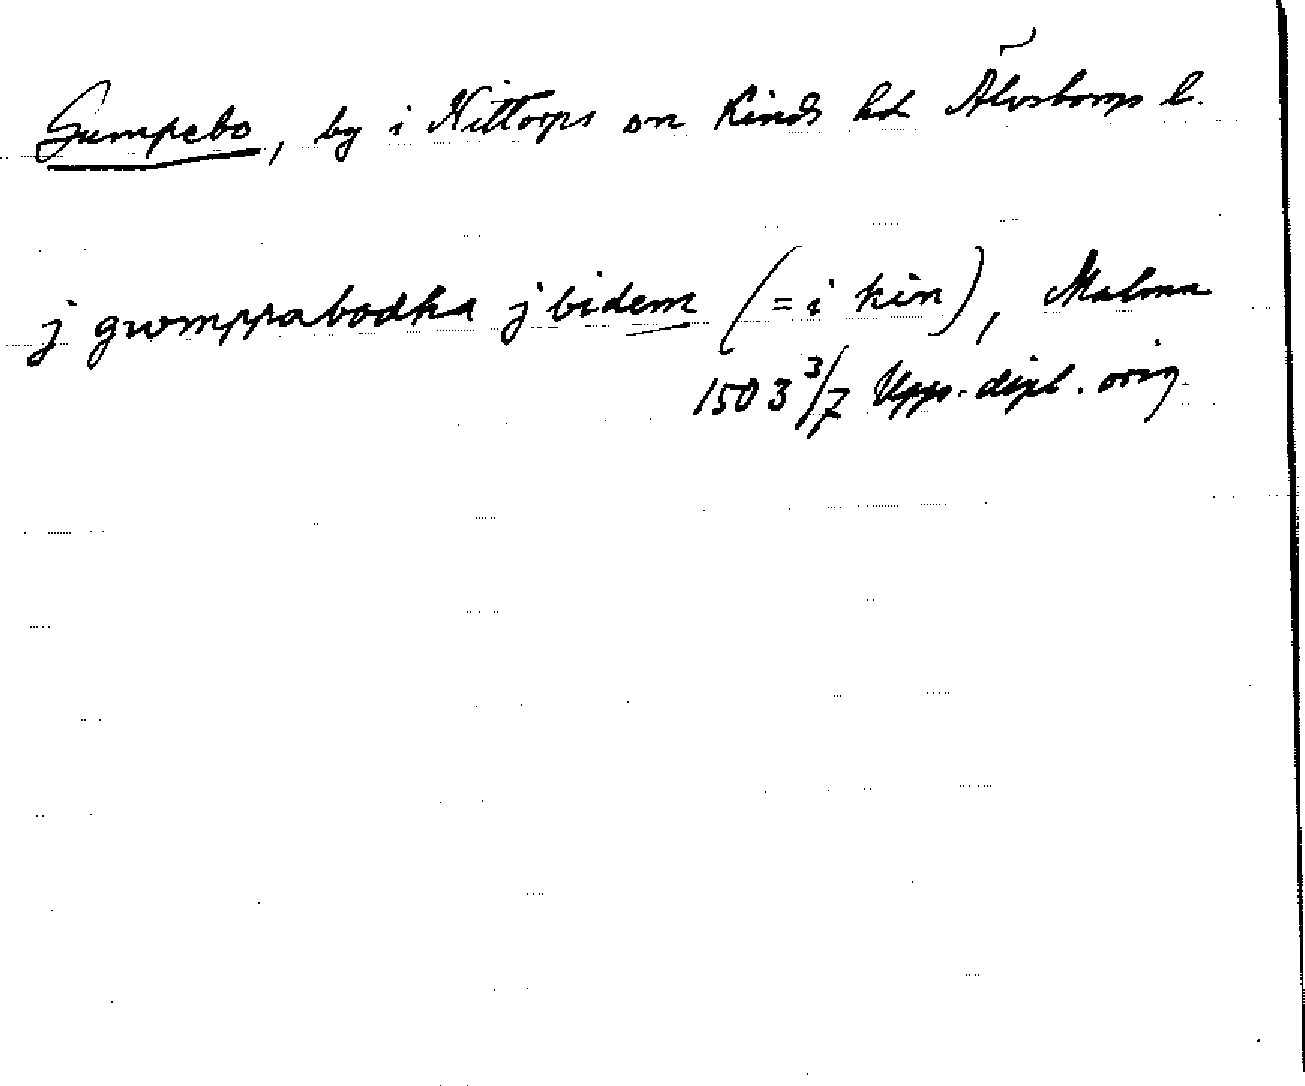 Gumpebo, by i Hittorps sn Kinds hd Älvsborgs l.
j gwmppabodha j bidem (= i kin), Malma
1503 3/7 Upps. dipl. orig